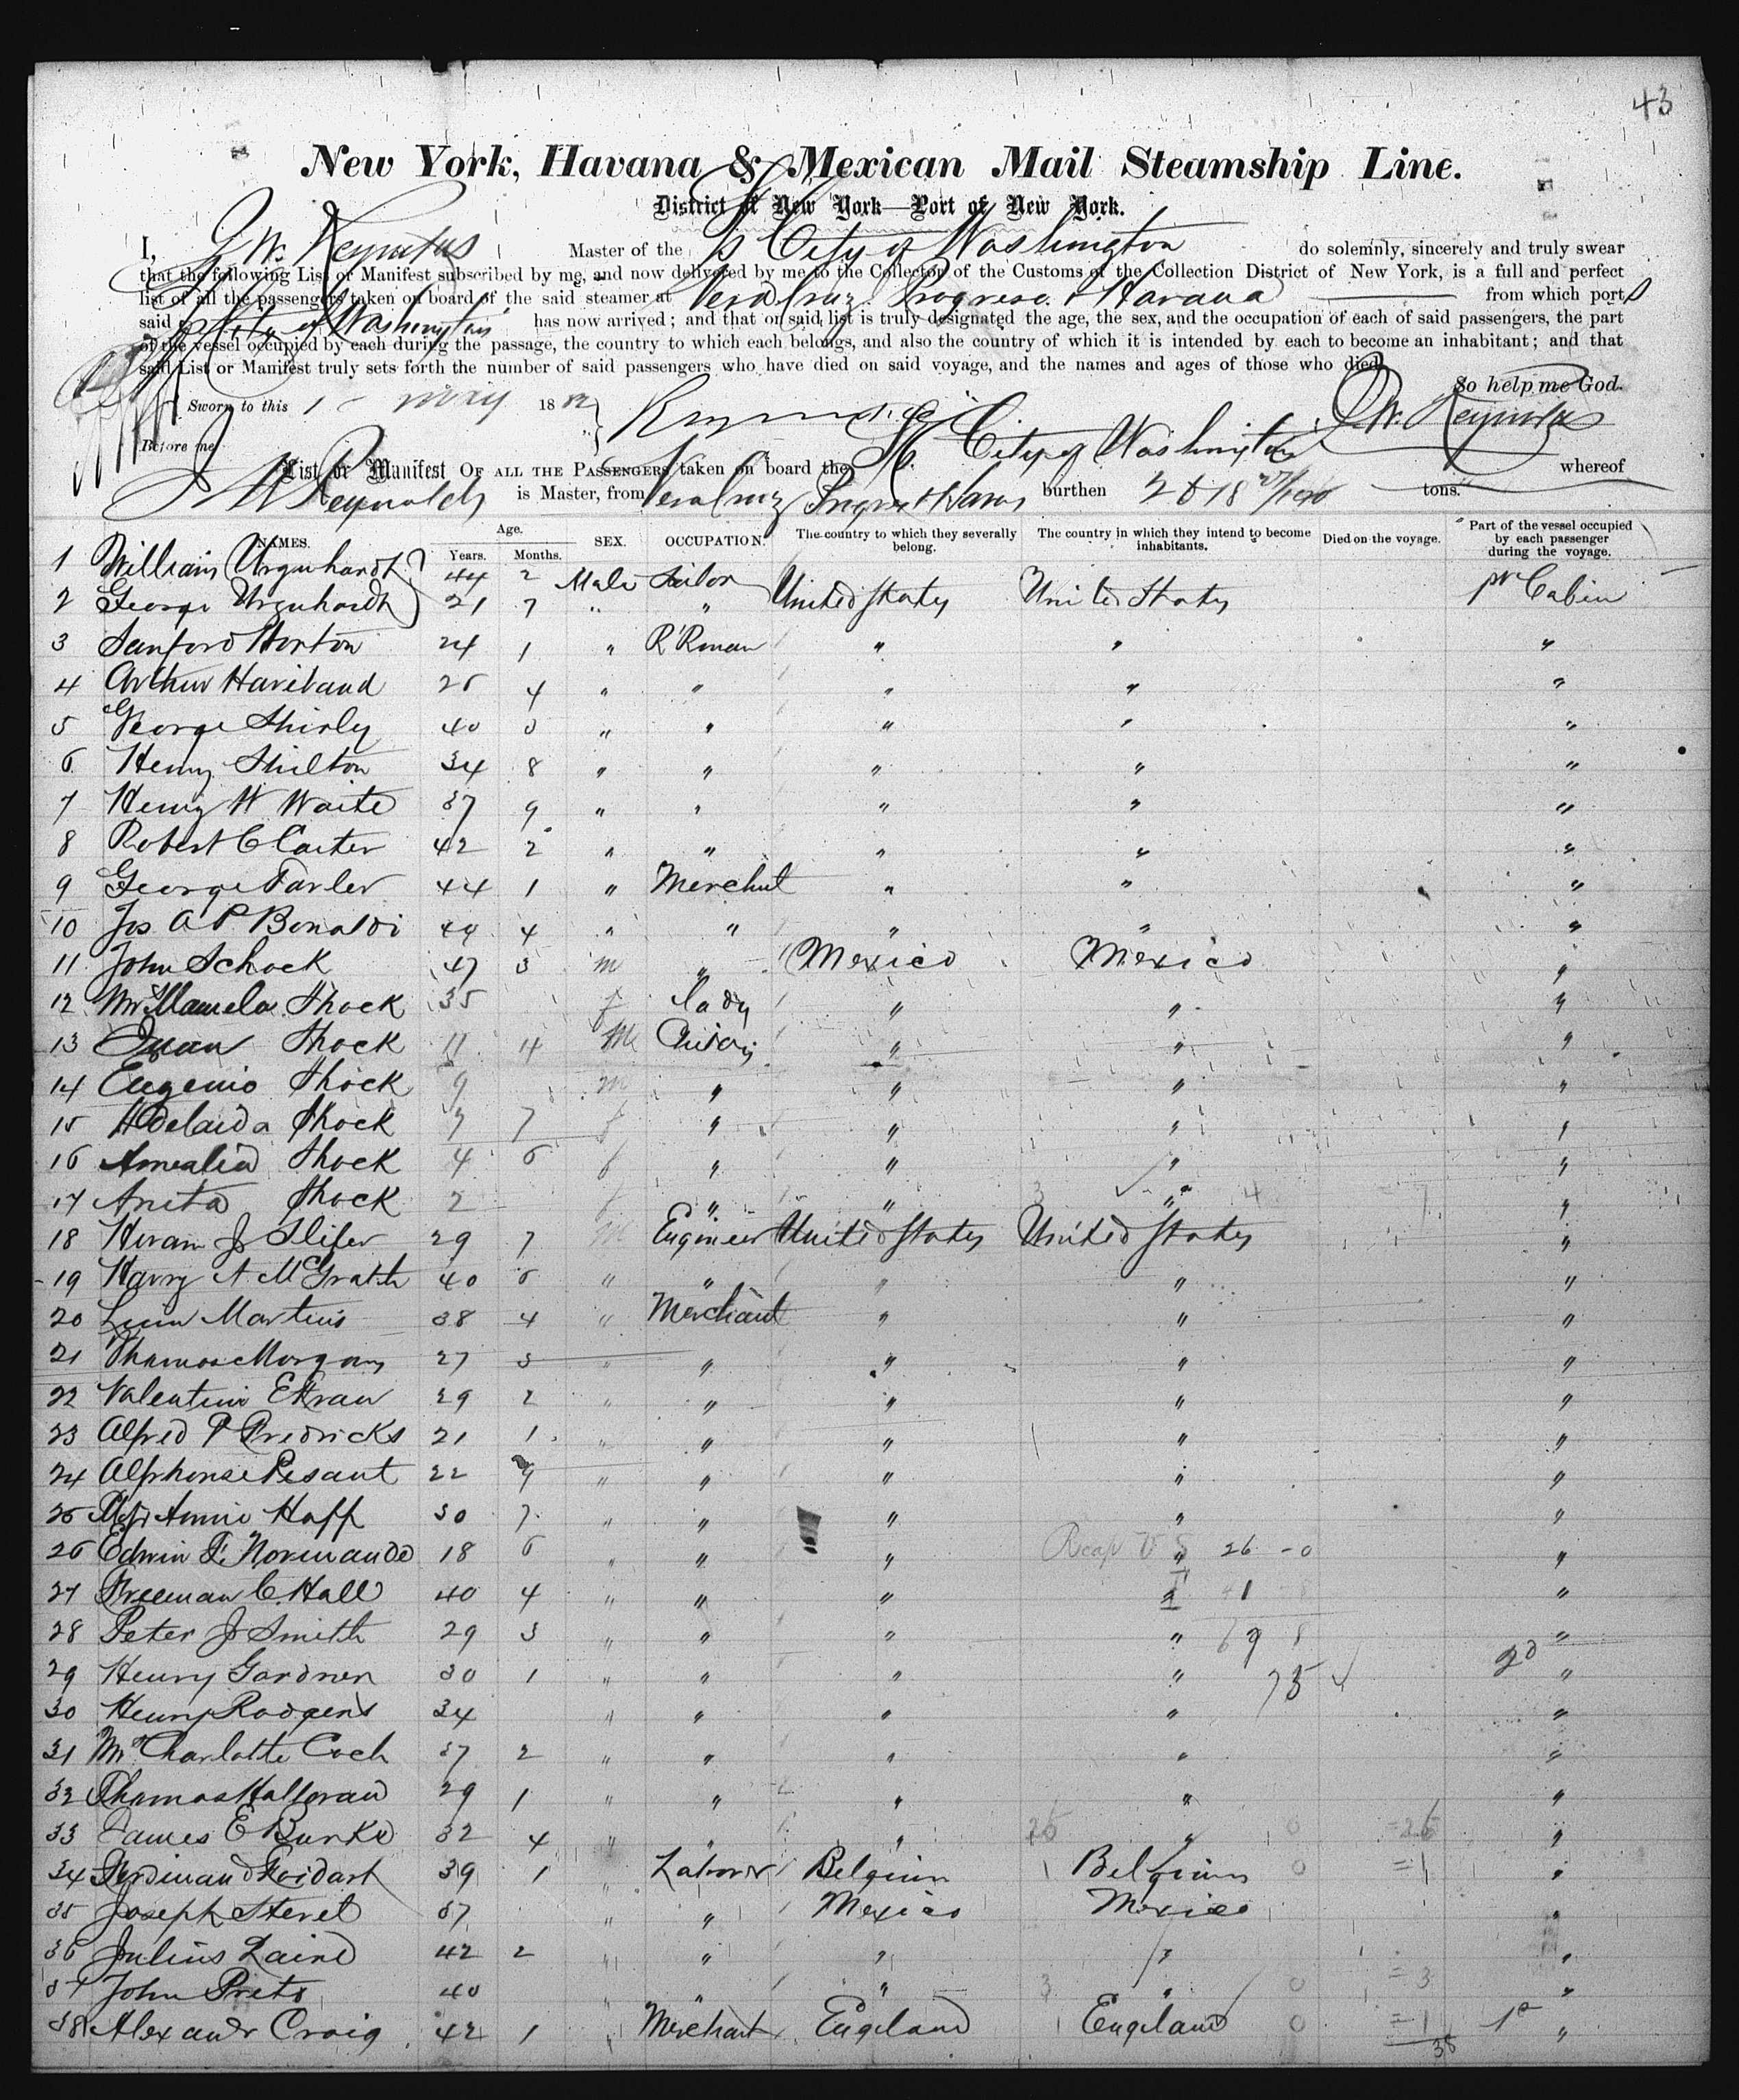 43
New York, Havana & Mexican Mail Steamship Line.
District of New York—Port of New York.
I, J. W. Reynolds Master of the SS City of Washington do solemnly, sincerely and truly swear
that the following List or Manifest subscribed by me, and now delivered by me to the Collector of the Customs of the Collection District of New York, is a full and perfect
list of all the passengers taken on board of the said steamer at Vera Cruz. Progreso. & Havana from which ports
said City of Washington has now arrived; and that on said list is truly designated the age, the sex, and the occupation of each of said passengers, the part
of the vessel occupied by each during the passage, the country to which each belongs, and also the country of which it is intended by each to become an inhabitant; and that
said List or Manifest truly sets forth the number of said passengers who have died on said voyage, and the names and ages of those who died.
So help me God.
Sworn to this 1 May 1882 J W. Reynolds
Before me
List or Manifest OF ALL THE PASSENGERS taken on board the City of Washington whereof
J W Reynolds is Master, from Vera Cruz Progreso & Havana burthen 2618 tons.
NAMES. Age. Years. Months. SEX. OCCUPATION. The country to which they severally belong. The country in which they intend to become inhabitants. Died on the voyage. Part of the vessel occupied by each passenger during the voyage.
1 William Urquhardt 44 2 Male Sailor
2 George Urquhardt 21 7 " " United States United States pr Cabin
3 Sanford Horton 24 1 " R'Rman " " "
4 Arthur Haviland 25 4 " " " " "
5 George Shirly 40 3 " " " " "
6 Henry Shilton 34 8 " " " " "
7 Henry W Waite 37 9 " " " " "
8 Robert C Carter 42 2 " " " " "
9 George Farler 44 1 " Merchnt " " "
10 Jos A P Bonaldi 44 4 " " " " "
11 John Schock 47 3 m " Mexico Mexico "
12 Mrs Manuela Shock 35 f lady " " "
13 Juan Shock 11 4 M " " "
14 Eugenio Shock 9 m " " " "
15 Adelaida Shock 7 7 f " " " "
16 Amealia Shock 4 6 f " " " "
17 Anita Shock 2 f " " " "
18 Hiram J Slifer 29 7 M Engineer United States United States "
19 Harry A McGrath 40 6 " " " " "
20 Martins 38 4 " Merchant " " "
21 Thomas Morgan 27 3 " " " " "
22 Valentin 29 2 " " " " "
23 Alfred P Fredricks 21 1 " " " " "
24 Alphonse Pesant 22 9 " " " " "
25 Annie Hoff 30 7 " " " " "
26 Edwin F. Normande 18 6 " " " " "
Recap U S 26 - 0
27 Freeman C. Hall 40 4 " " " " "
41 8
28 Peter J Smith 29 3 " " " " "
67 8
29 Henry Gardner 30 1 " " " " 2d "
75
30 Henry Rodgers 34 " " " " "
31 Mrs Charlotte Coch 37 2 " " " " "
32 Thomas Halloran 29 1 " " " " "
33 James E Burke 32 4 " " " " "
26 0 = 26
34 Ferdinand Goidart 39 1 " Laborer Belgium Belgium "
1 0 = 1
35 Joseph Steret 37 " " Mexico Mexico "
36 Julius Laine 42 2 " " " " "
37 John Preto 40 " " " " "
3 0 = 3
38 Alexandr Craig 42 1 " Merchant England England 1st "
1 0 = 1
38